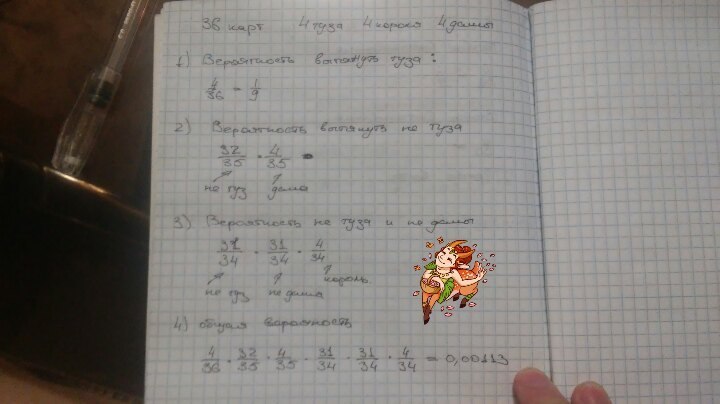 36 карт 4 туза 4 короля 4 дамы
1) Вероятность вытянуть туза:
4/36 = 1/9
2) Вероятность вытянуть не туза
32/35 · 4/35
не туз дама
3) Вероятность не туза и не дамы
31/34 · 31/34 · 4/34
не туз не дама король.
4) общая вероятность
4/36 · 32/35 · 4/35 · 31/34 · 31/34 · 4/34 = 0,00113